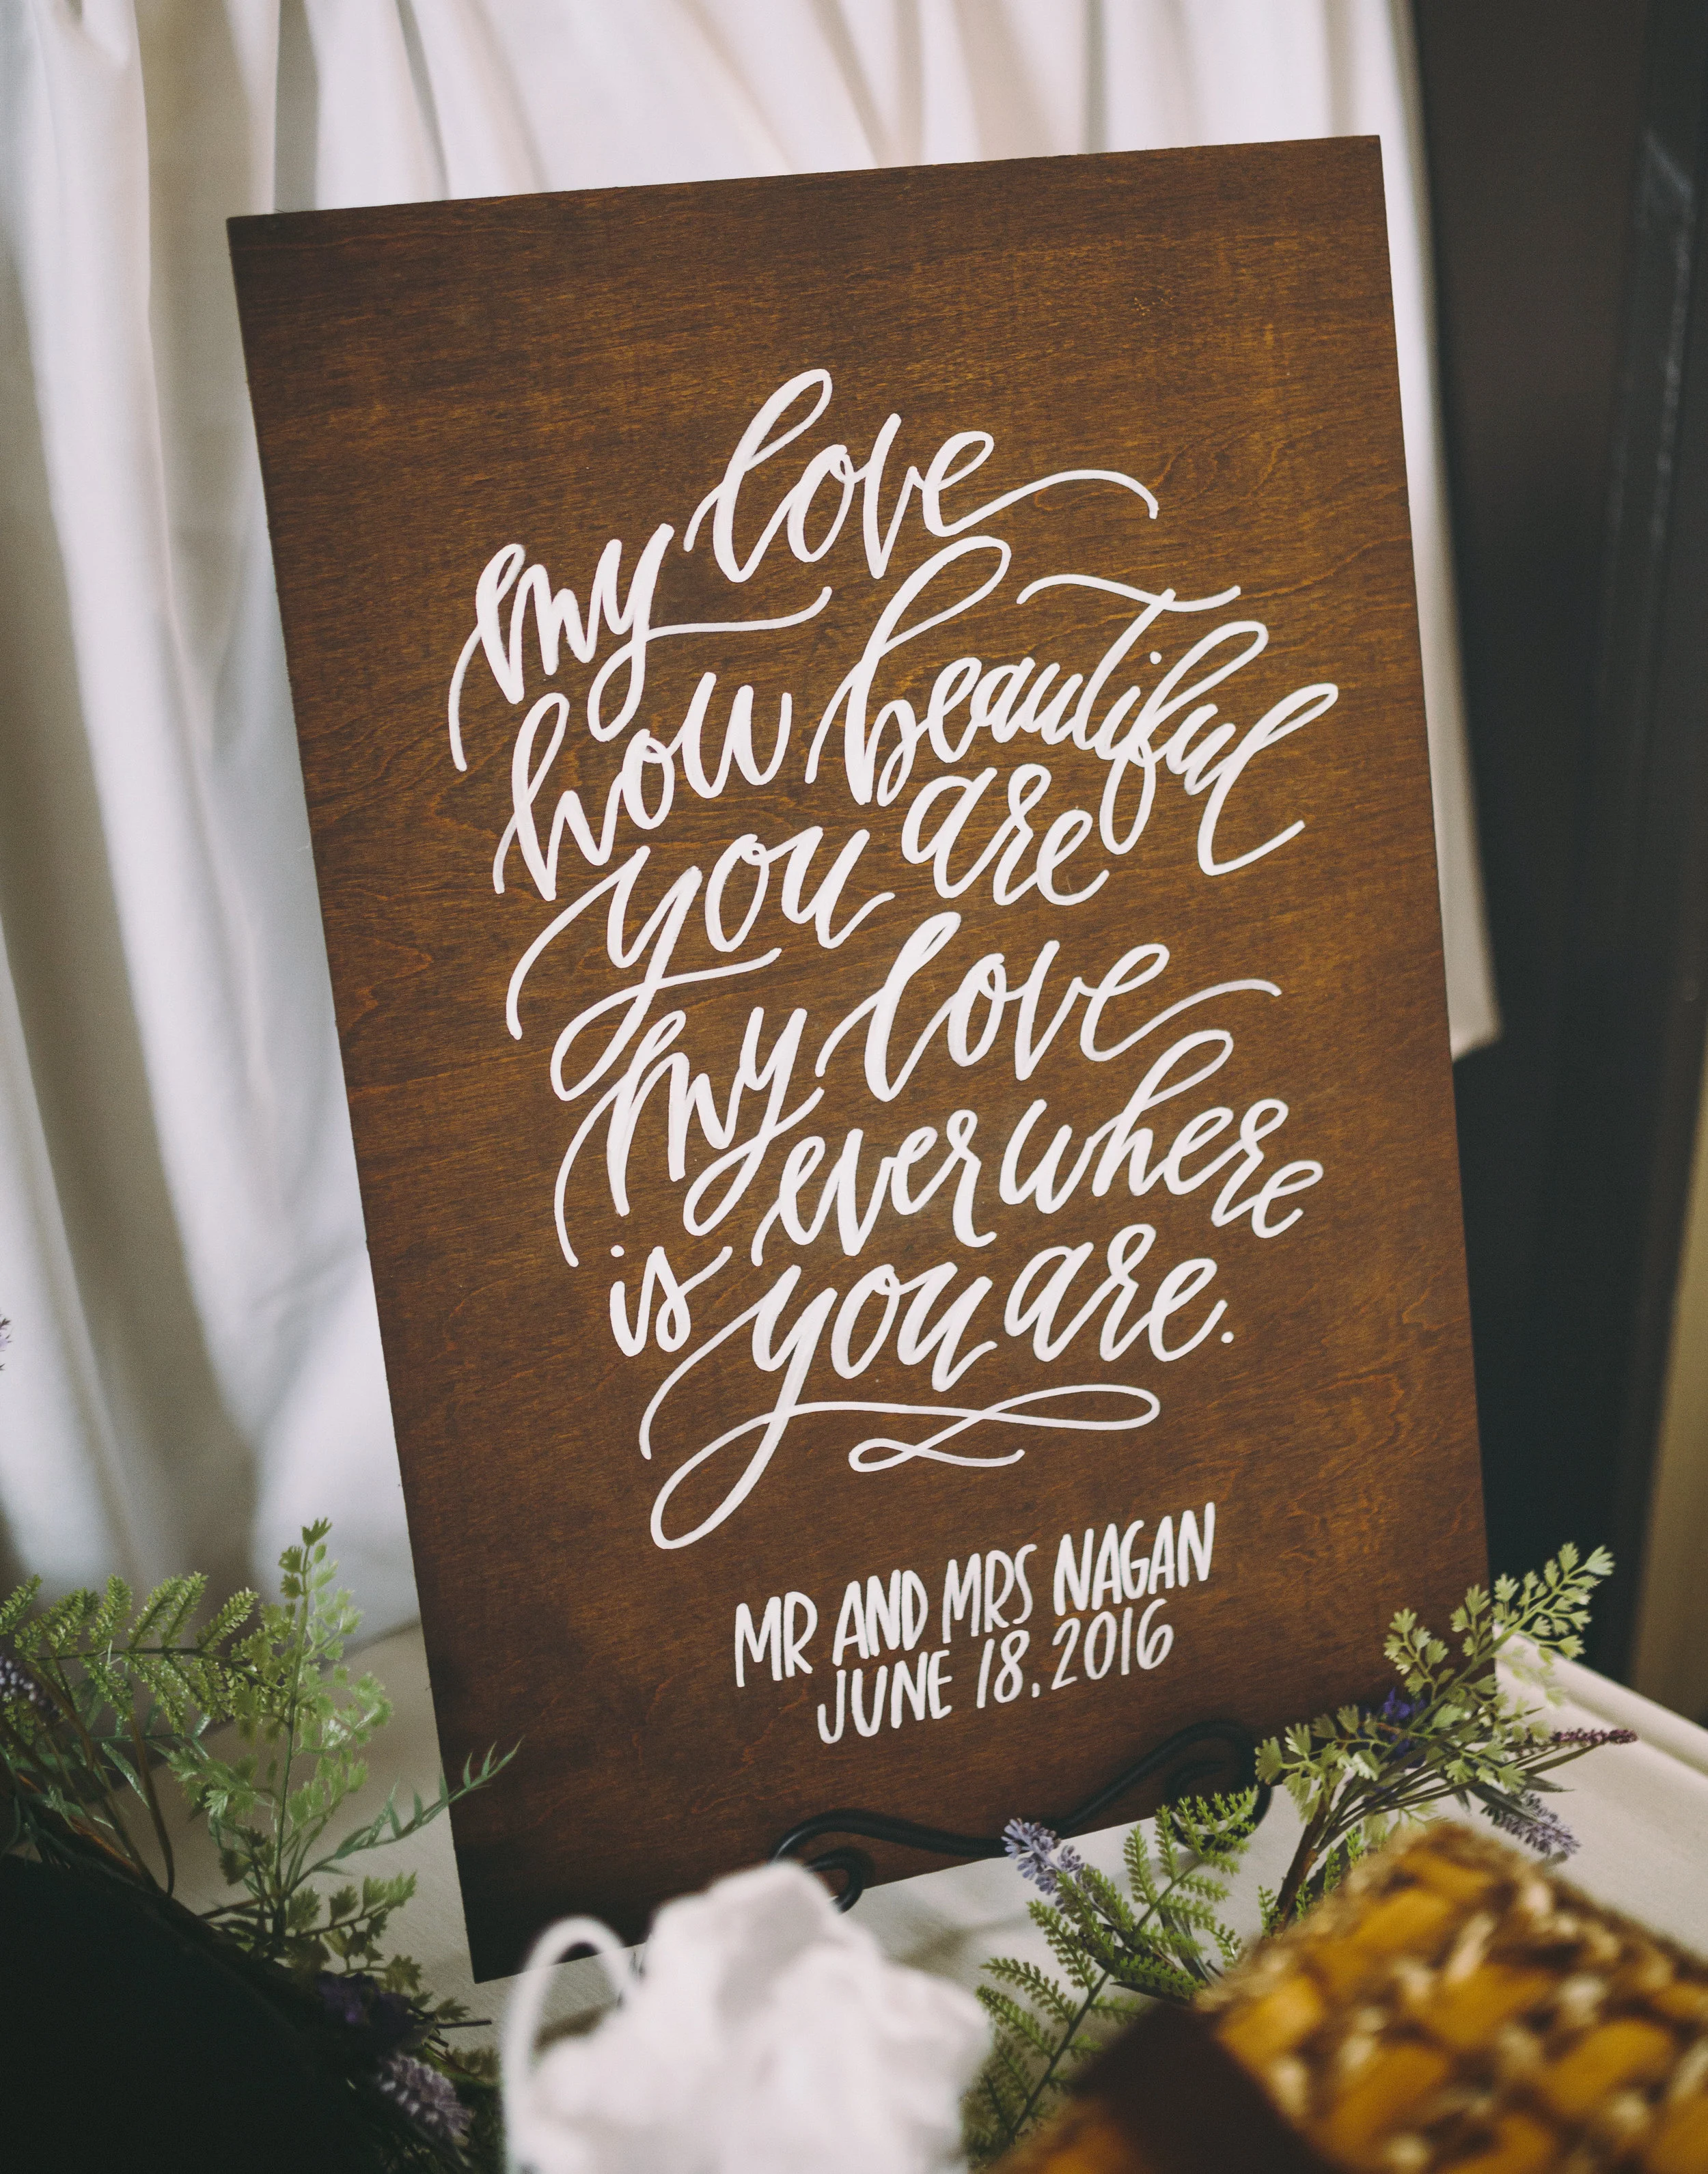 my love
how beautiful
you are
my love
is everwhere
you are.
MR AND MRS NAGAN
JUNE 18, 2016